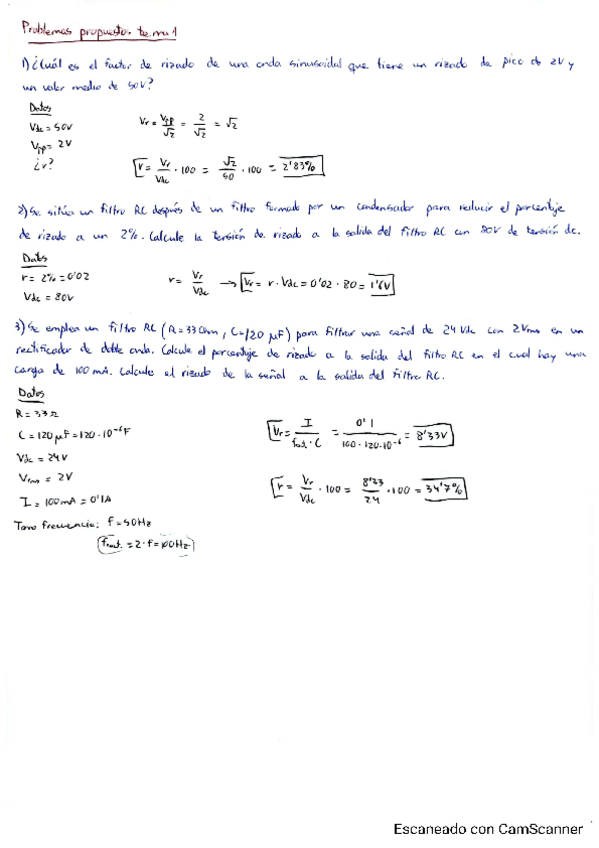 Problemas propuestos tema 1
1) ¿Cuál es el factor de rizado de una onda sinusoidal que tiene un rizado de pico de 2V y
un valor medio de 50V?
Datos
Vdc = 50V
Vpp = 2V
¿r?
Vr = Vpp/√2 = 2/√2 = √2
r = Vr/Vdc · 100 = √2/50 · 100 = 2'83%
2) Se sitúa un filtro RC después de un filtro formado por un condensador para reducir el porcentaje
de rizado a un 2%. Calcule la tensión de rizado a la salida del filtro RC con 80V de tensión dc.
Datos
r = 2% = 0'02
Vdc = 80V
r = Vr/Vdc → Vr = r · Vdc = 0'02 · 80 = 1'6V
3) Se emplea un filtro RC (R = 33 Ohm, C = 120 µF) para filtrar una señal de 24 Vdc con 2Vrms en un
rectificador de doble onda. Calcule el porcentaje de rizado a la salida del filtro RC en el cual hay una
carga de 100 mA. Calcule el rizado de la señal a la salida del filtro RC.
Datos
R = 33 Ω
C = 120 µF = 120 · 10⁻⁶ F
Vdc = 24V
Vrms = 2V
I = 100mA = 0'1A
Tomo frecuencia: f = 50Hz
frect. = 2 · f = 100Hz
Vr = I/frect · C = 0'1/100 · 120 · 10⁻⁶ = 8'33V
r = Vr/Vdc · 100 = 8'33/24 · 100 = 34'7%
Escaneado con CamScanner